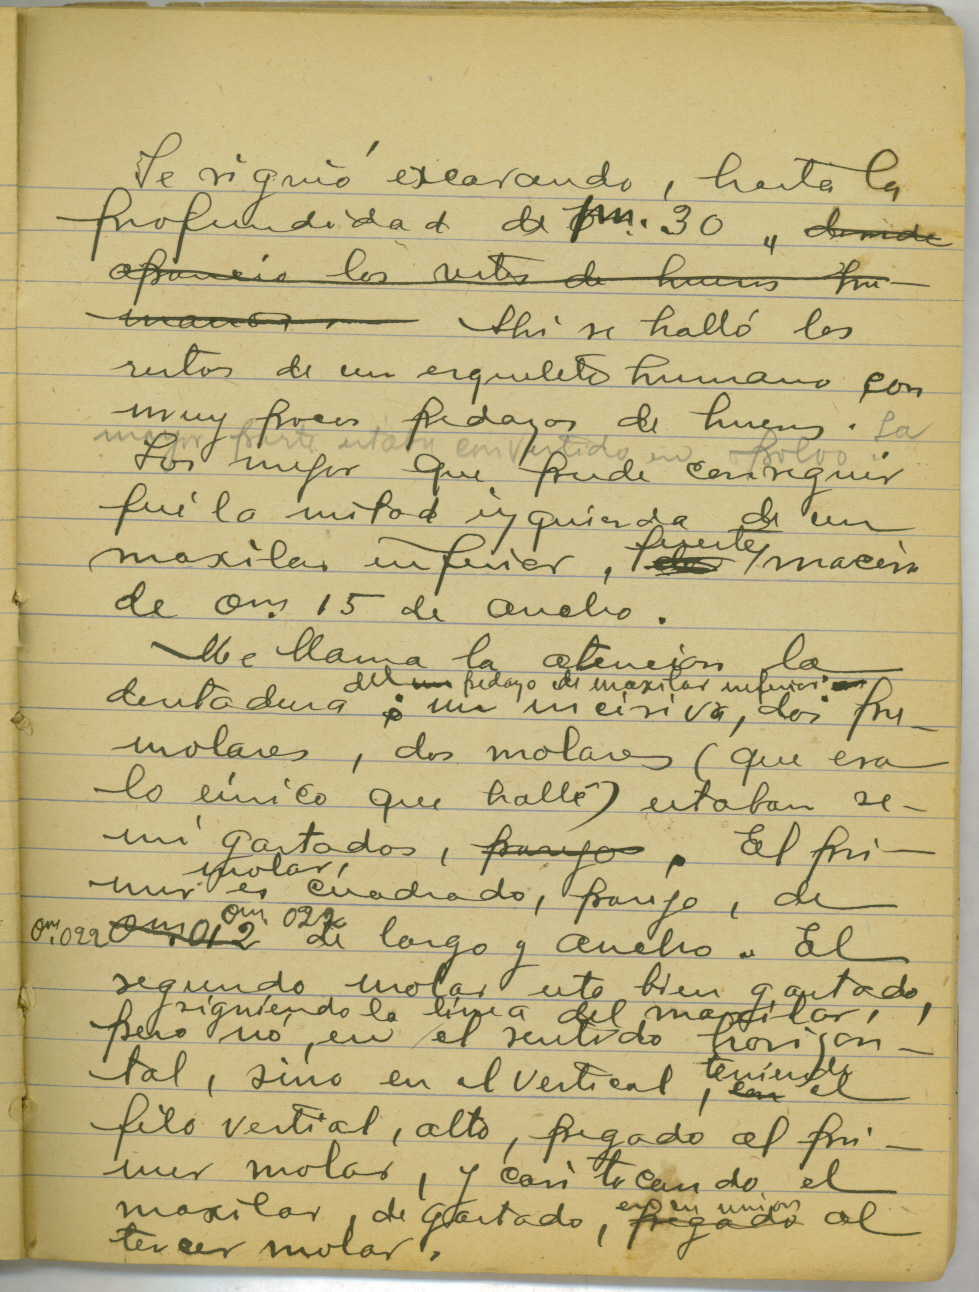 Se siguió excavando, hasta la
profundidad de 0m.30 „ donde
aparecio los restos de huesos hu-
manos. Ahi se halló los
restos de un esqueleto humano con
muy pocos pedazos de huesos. La
mayor parte estaba convertido en polvo.
Los mejor que pude conseguir
fué la mitad izquierda de un
maxilar inferior, fuerte, macizo
de 0m. 15 de ancho.
Me llama la atencion la
del un pedazo de maxilar inferior:
dentadura : un incisiva, dos pre-
molares, dos molares (que era
lo único que hallé) estaban se-
mi gastados, parejo. El pri-
molar,
mer es cuadrado, parejo, de
0m.022
0m.022 0m.012 de largo y ancho. El
segundo molar esta bien gastado,
siguiendo la línea del maxilar,
pero no, en el sentido horizon-
tal, sino en el vertical, teniendo
en el
filo vertial, alto, pegado al pri-
mer molar, y casi tocando el
maxilar, degastado, en su union
pegado al
tercer molar.